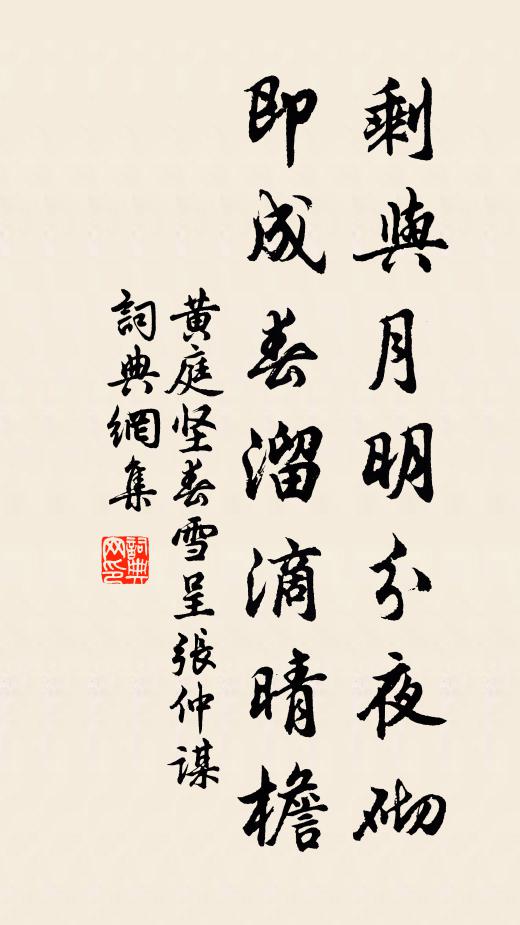 剩與月明分夜砌
即成春溜滴晴檐
黄庭坚春雪呈張仲謀
詞典網集
詞典网印